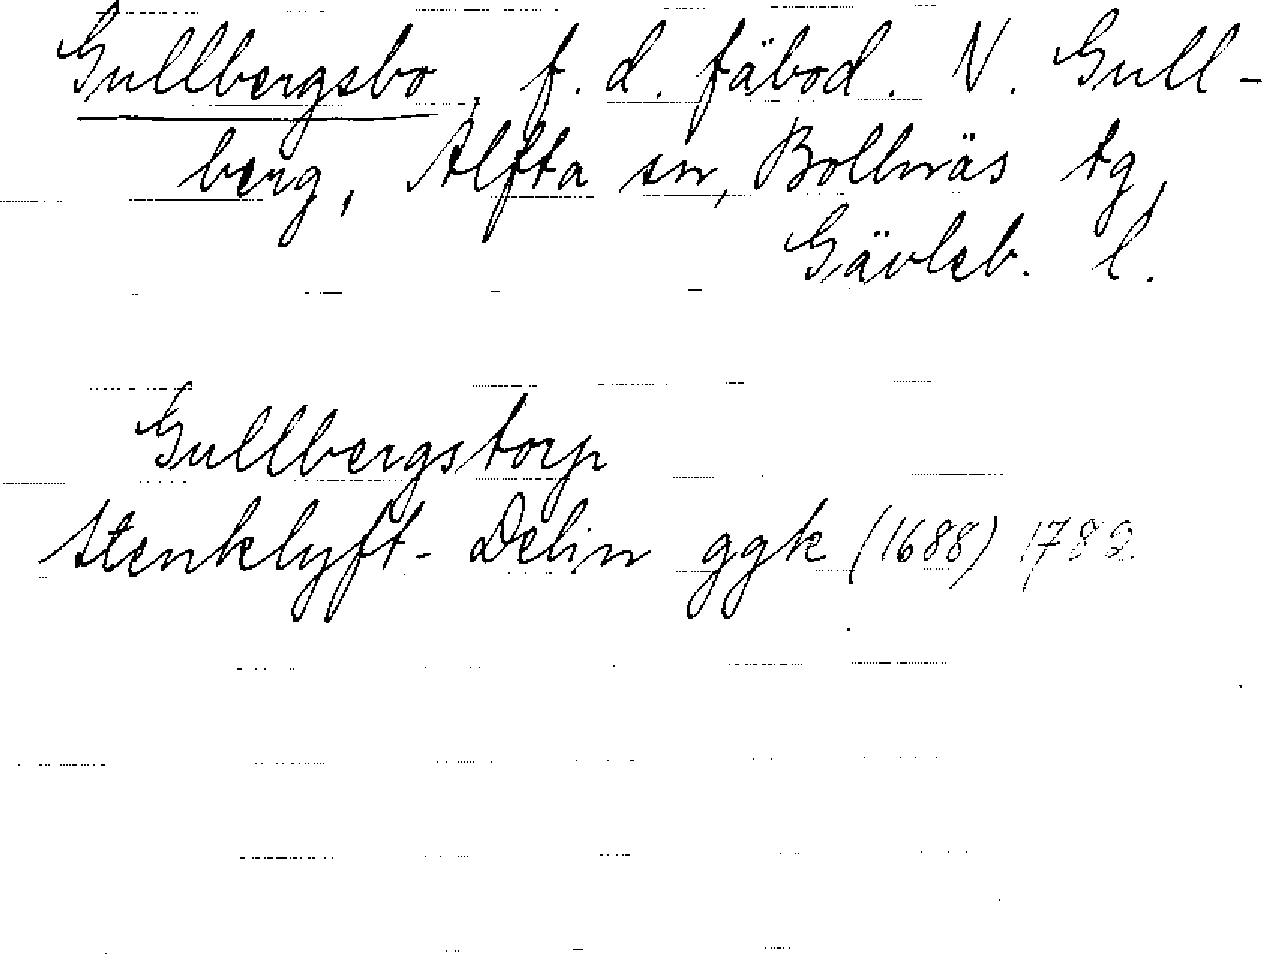 Gullbergsbo, f. d. fäbod. N. Gull-
berg, Alfta sn, Bollnäs tg,
Gävleb. l.
Gullbergstorp
Stenklyft- Delin ggk (1688) 1782.